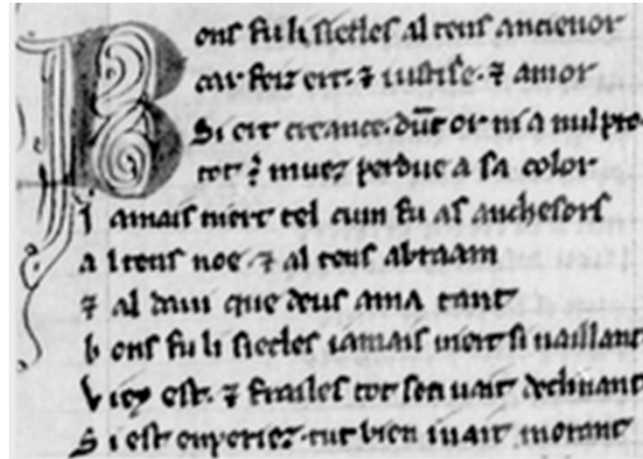 Bons fu li siecles al tens ancienor
car feiz ert ⁊ iustise ⁊ amor
Si ert creance. dūt or ni a nul pro
tot ē muez perdue a sa color
Jamais niert tel cum fu as anchesors
al tens noe ⁊ al tens abraam
⁊ al dauid que deus ama tant
bons fu li siecles iamais niert si uaillant
Viez est. ⁊ frailes tot sen uait declinant
Si est enperiez. tut bien uait morant